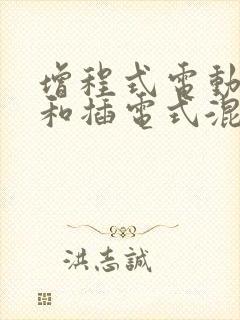 增程式電動
和插電式混
洪志誠